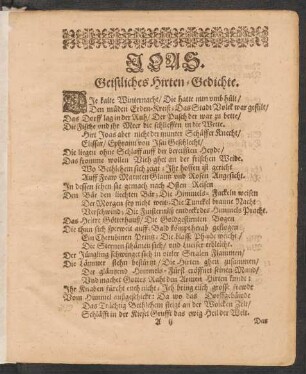 JOAS.
Geistliches Hirten-Gedichte.
DJe kalte Winternacht/ Die hatte nun umb hült/
Den müden Erden-Kreyß/ Das Stadt Volck war gestilt/
Das Dorff lag in der Ruh/ Der Pusch der war zu bette/
Die Fische und ihr Meer die schlieffen in die Wette.
Hirt Joas aber nicht der munter Schäffer Knecht/
Eliasar/ Ephraim von Isai Geschlecht/
Die liegen ohne Schlaff auff der bereifften Heyde/
Das fromme wollen Vieh geht an der frischen Weide.
Wo Bethlehem sich zeigt
In dessen sehen sie gemach nach Osten Reisen
Den Bär den lichten Bär- Die Himmels-Fackeln weisen
Der Morgen sey nicht weit- Die Tunckel braune Nacht
Verschwind; Die Finsternüß entdeckt des Himmels Pracht.
Das Heitre Götterhauß/ Die Goldgestirnten Bogen
Die thun sich sperweit auff- Bald kömpt herab geflogen
Ein Cherubiner Printz- Die blasse Phœbe weicht/
Die Sternen schämen sich/ und Lucifer erbleicht.
Der Jüngling schwinget sich in vieler Stralen flammen/
Die Lämmer stehn bestürtzt/ Die Hirten gehn zusammen/
Der gläntzend Himmels-Fürst eröffnet seinen Mund/
Und machet Gottes Raht den Armen Hirten kundt:
Ihr Knaben fürcht euch nicht- Ich bring euch grosse freude
Vom Himmel außgeschickt: Da wo das Dorffgebäude
Das Trächtig Bethlehem steigt an der Wolcken Zelt/
Schläfft in der Kripf Grufft das ewig Heil der Welt.
A ij
Das